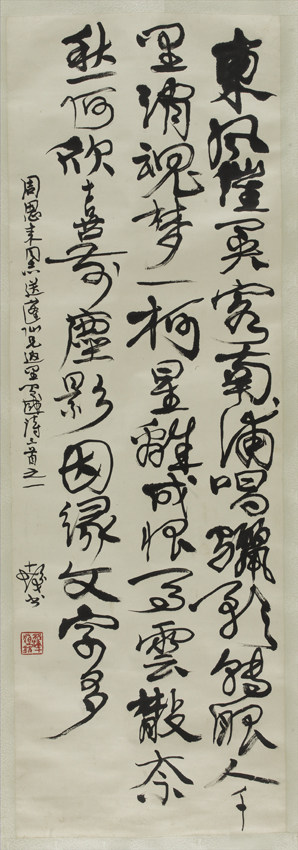 東風催異客南浦唱驪歌轉眼人千
里消魂梦一柯星離成恨事雲散奈
愁何欣喜前塵影因緣文字多
周恩来同志送蓬仙兄返里有感詩三首之一
十髮书